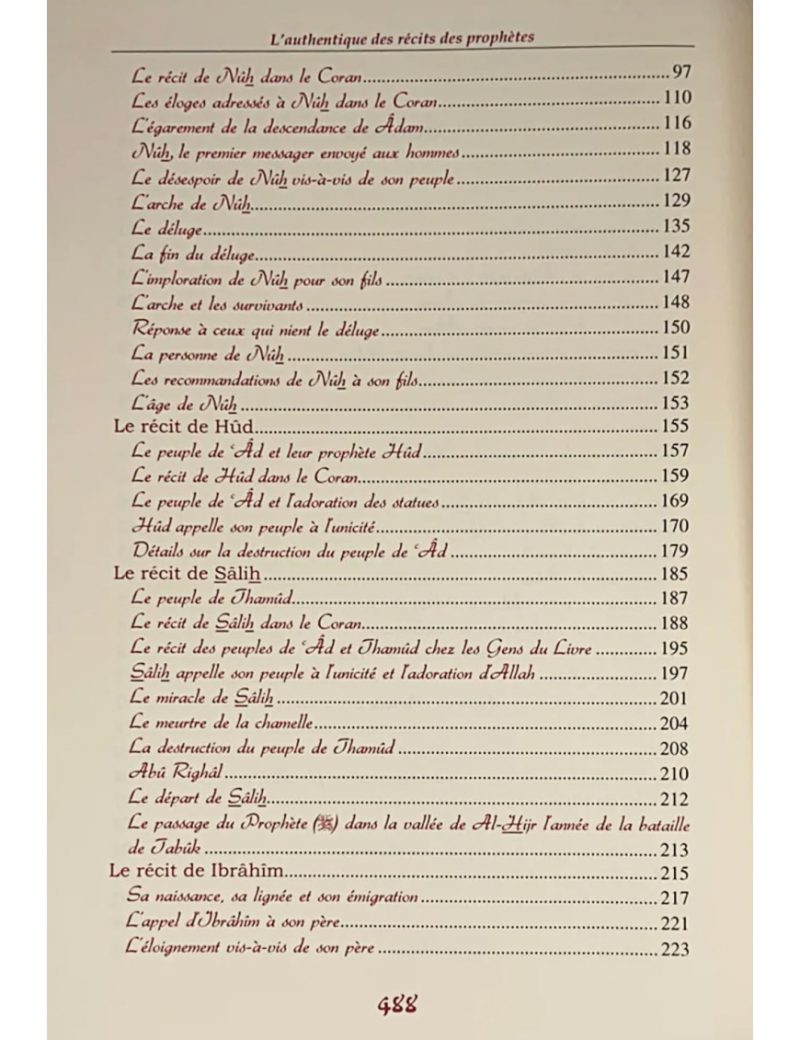 L'authentique des récits des prophètes
Le récit de Nûh dans le Coran........97
Les éloges adressés à Nûh dans le Coran........110
L'égarement de la descendance de Âdam........116
Nûh, le premier messager envoyé aux hommes........118
Le désespoir de Nûh vis-à-vis de son peuple........127
L'arche de Nûh........129
Le déluge........135
La fin du déluge........142
L'imploration de Nûh pour son fils........147
L'arche et les survivants........148
Réponse à ceux qui nient le déluge........150
La personne de Nûh........151
Les recommandations de Nûh à son fils........152
L'âge de Nûh........153
Le récit de Hûd........155
Le peuple de ʿÂd et leur prophète Hûd........157
Le récit de Hûd dans le Coran........159
Le peuple de ʿÂd et l'adoration des statues........169
Hûd appelle son peuple à l'unicité........170
Détails sur la destruction du peuple de ʿÂd........179
Le récit de Sâlih........185
Le peuple de Thamûd........187
Le récit de Sâlih dans le Coran........188
Le récit des peuples de ʿÂd et Thamûd chez les Gens du Livre........195
Sâlih appelle son peuple à l'unicité et l'adoration d'Allah........197
Le miracle de Sâlih........201
Le meurtre de la chamelle........204
La destruction du peuple de Thamûd........208
Abû Righâl........210
Le départ de Sâlih........212
Le passage du Prophète (ﷺ) dans la vallée de Al-Hijr l'année de la bataille
de Tabûk........213
Le récit de Ibrâhîm........215
Sa naissance, sa lignée et son émigration........217
L'appel d'Ibrâhîm à son père........221
L'éloignement vis-à-vis de son père........223
488